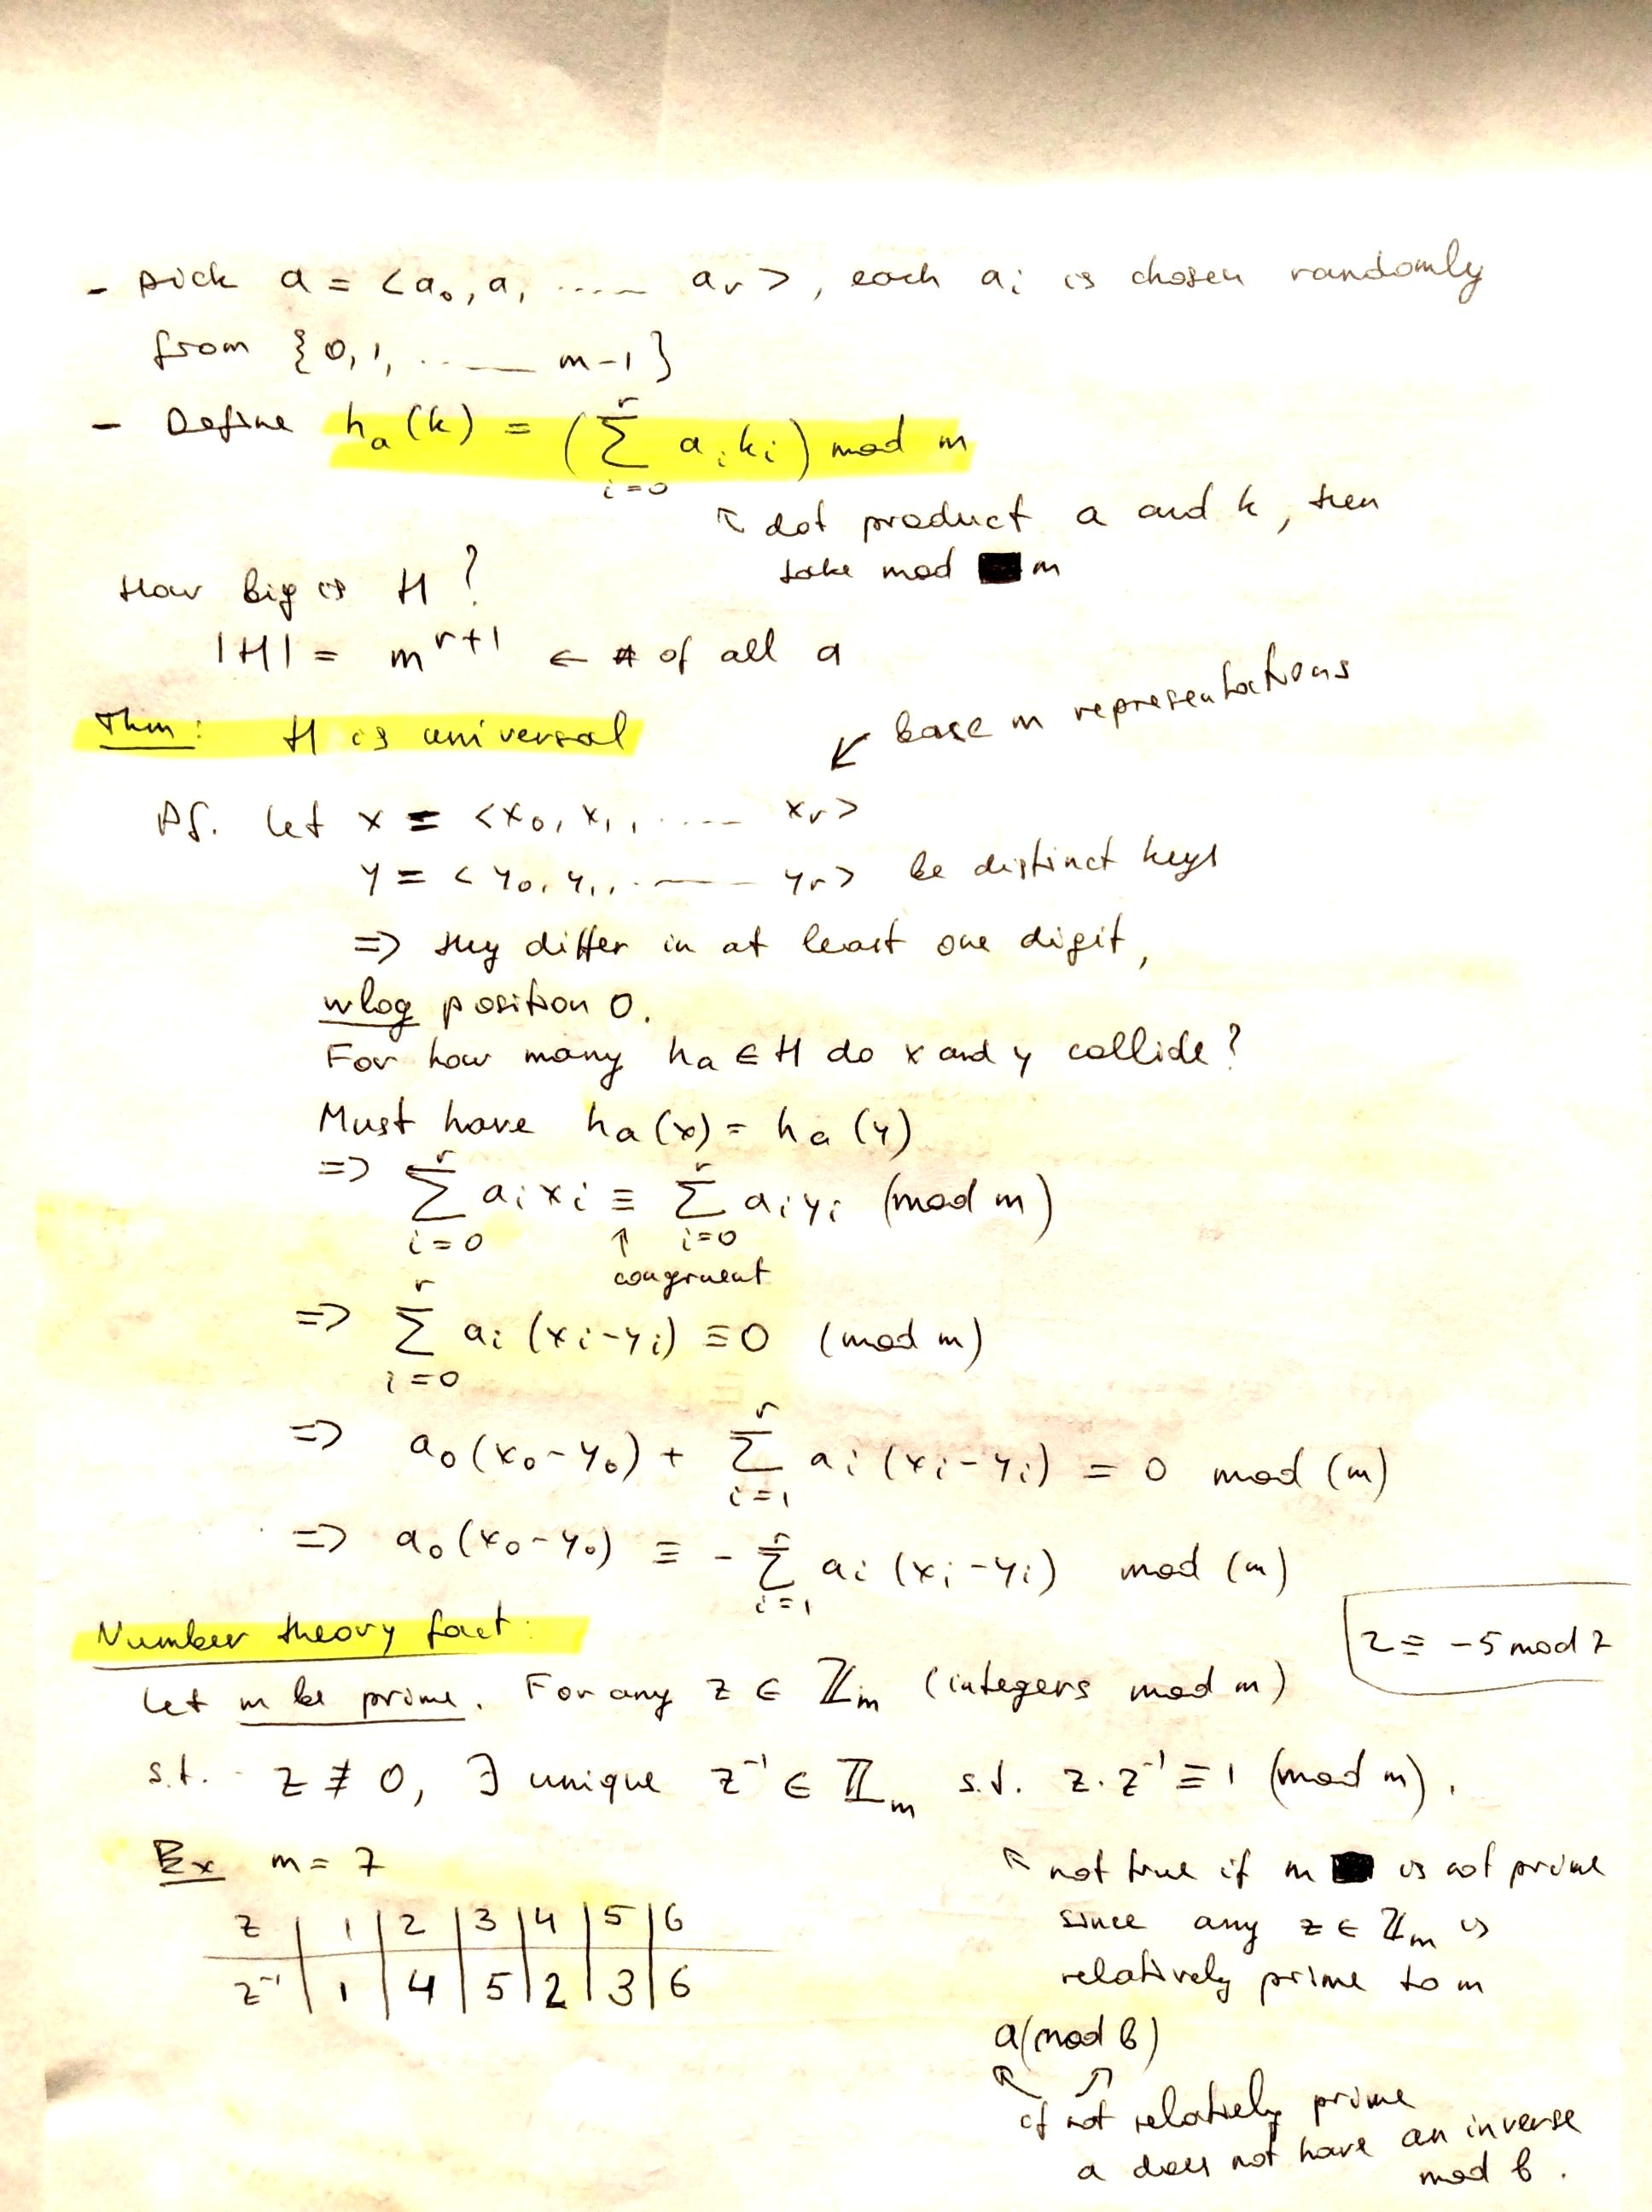 - pick a = <a₀, a₁ ..... aᵣ>, each aᵢ is chosen randomly
from {0, 1, ..... m-1}
- Define hₐ(k) = (∑ᵢ₌₀ʳ aᵢkᵢ) mod m
↖ dot product a and k, then
take mod m
How big is H?
|H| = m^(r+1) ← # of all a
Thm: H is universal
↙ base m representations
Pf. Let x = <x₀, x₁, ..... xᵣ>
y = <y₀, y₁, ..... yᵣ> be distinct keys
=> they differ in at least one digit,
wlog position 0.
For how many hₐ ∈ H do x and y collide?
Must have hₐ(x) = hₐ(y)
=> ∑ᵢ₌₀ʳ aᵢxᵢ ≡ ∑ᵢ₌₀ʳ aᵢyᵢ (mod m)
↑ congruent
=> ∑ᵢ₌₀ʳ aᵢ(xᵢ-yᵢ) ≡ 0 (mod m)
=> a₀(x₀-y₀) + ∑ᵢ₌₁ʳ aᵢ(xᵢ-yᵢ) = 0 mod (m)
=> a₀(x₀-y₀) ≡ -∑ᵢ₌₁ʳ aᵢ(xᵢ-yᵢ) mod (m)
Number theory fact:
2 ≡ -5 mod 7
Let m be prime. For any z ∈ ℤₘ (integers mod m)
s.t. z ≢ 0, ∃ unique z⁻¹ ∈ ℤₘ s.t. z·z⁻¹ ≡ 1 (mod m).
Ex m = 7
z | 1 | 2 | 3 | 4 | 5 | 6
z⁻¹ | 1 | 4 | 5 | 2 | 3 | 6
↖ not true if m is not prime
since any z ∈ ℤₘ is
relatively prime to m
a(mod b)
↖ ↗
if not relatively prime
a does not have an inverse
mod b.